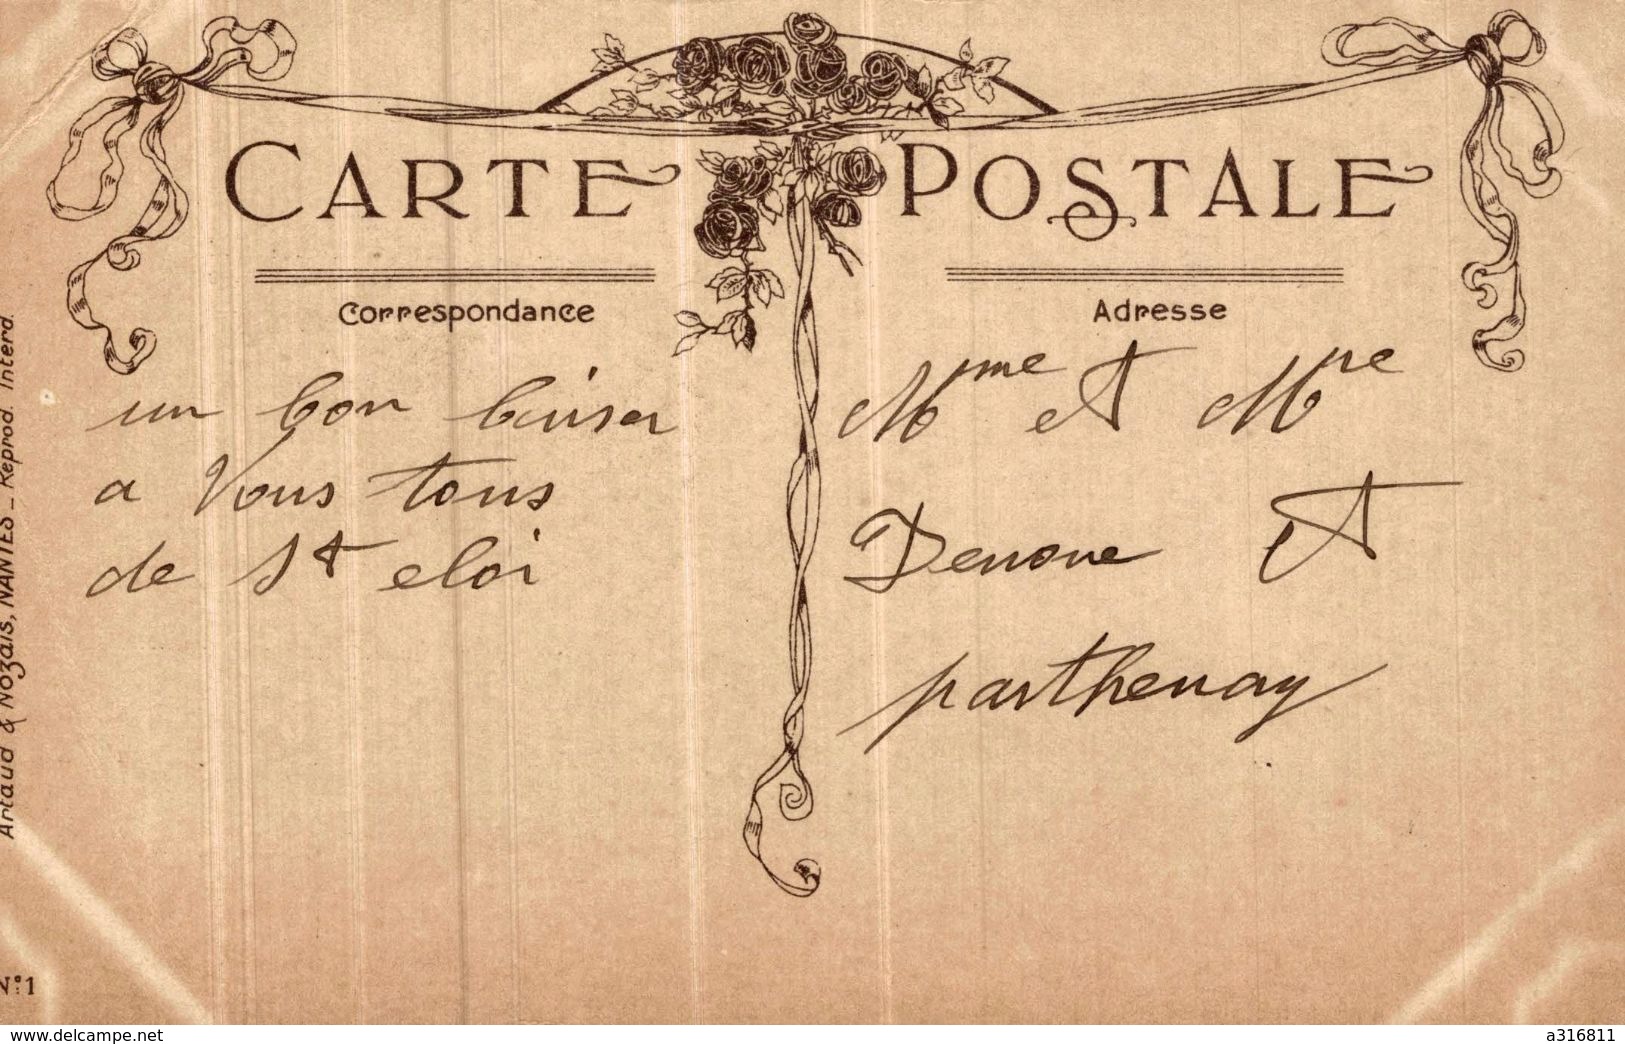 CARTE POSTALE
Correspondance
un bon baiser
a Vous tous
de St eloi
Adresse
Mme et Mre
Denoue et
parthenay
Artaud & Nozais, NANTES _ Reprod. Interd.
N° 1
www.delcampe.net
a316811